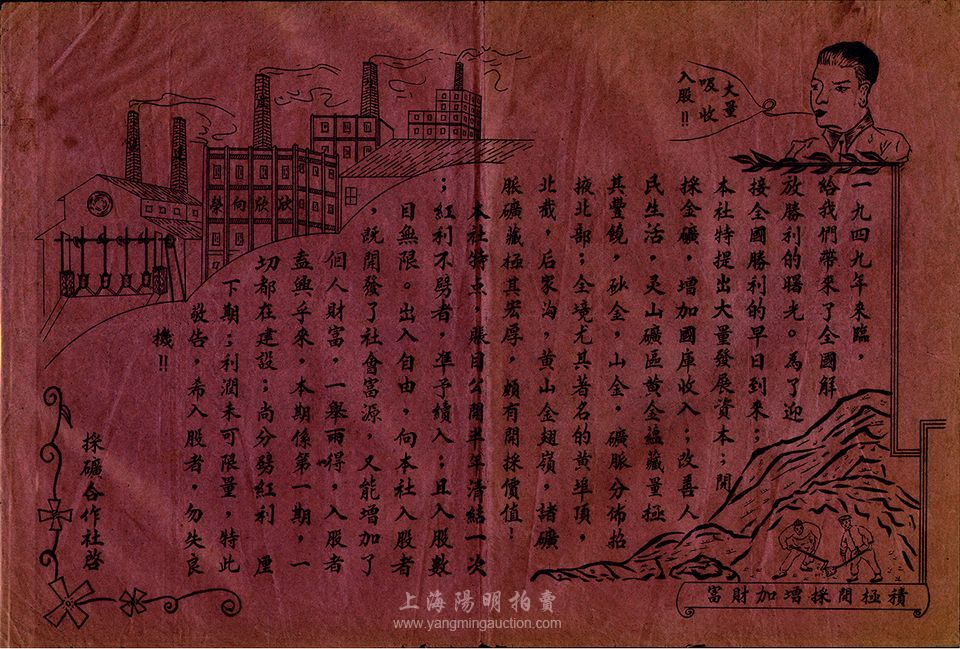 大量
吸收
入股!!
一九四九年來臨，
給我們帶來了全國解
放勝利的曙光。為了迎
接全國勝利的早日到来；
本社特提出大量發展資本；開
採金礦，增加國庫收入；改善人
民生活，灵山礦區黄金蕴藏量極
其豐饒，砂金，山金，礦脈分佈招
掖北部；全境尤其著名的黄埠頂，
北截，后家沟，黄山金翅嶺，諸礦
脈礦藏極其宏厚，頗有開採價值！
本社特点，賬目公開半年清結一次
；紅利不劈者，準予續入；且入股數
目無限。出入自由，向本社入股者
，既開發了社會富源，又能增加了
個人財富，一舉兩得，入股者
盍興乎來，本期係第一期，一
切都在建設；尚分劈紅利 厘
下期；利潤未可限量，特此
敬告，希入股者，勿失良
機!!
採礦合作社啓
欣欣向榮
積極開採增加財富
上海陽明拍賣
www.yangmingauction.com